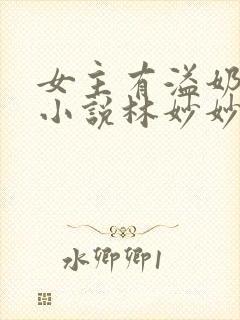 女主有溢奶
小说林妙妙
水卿卿1